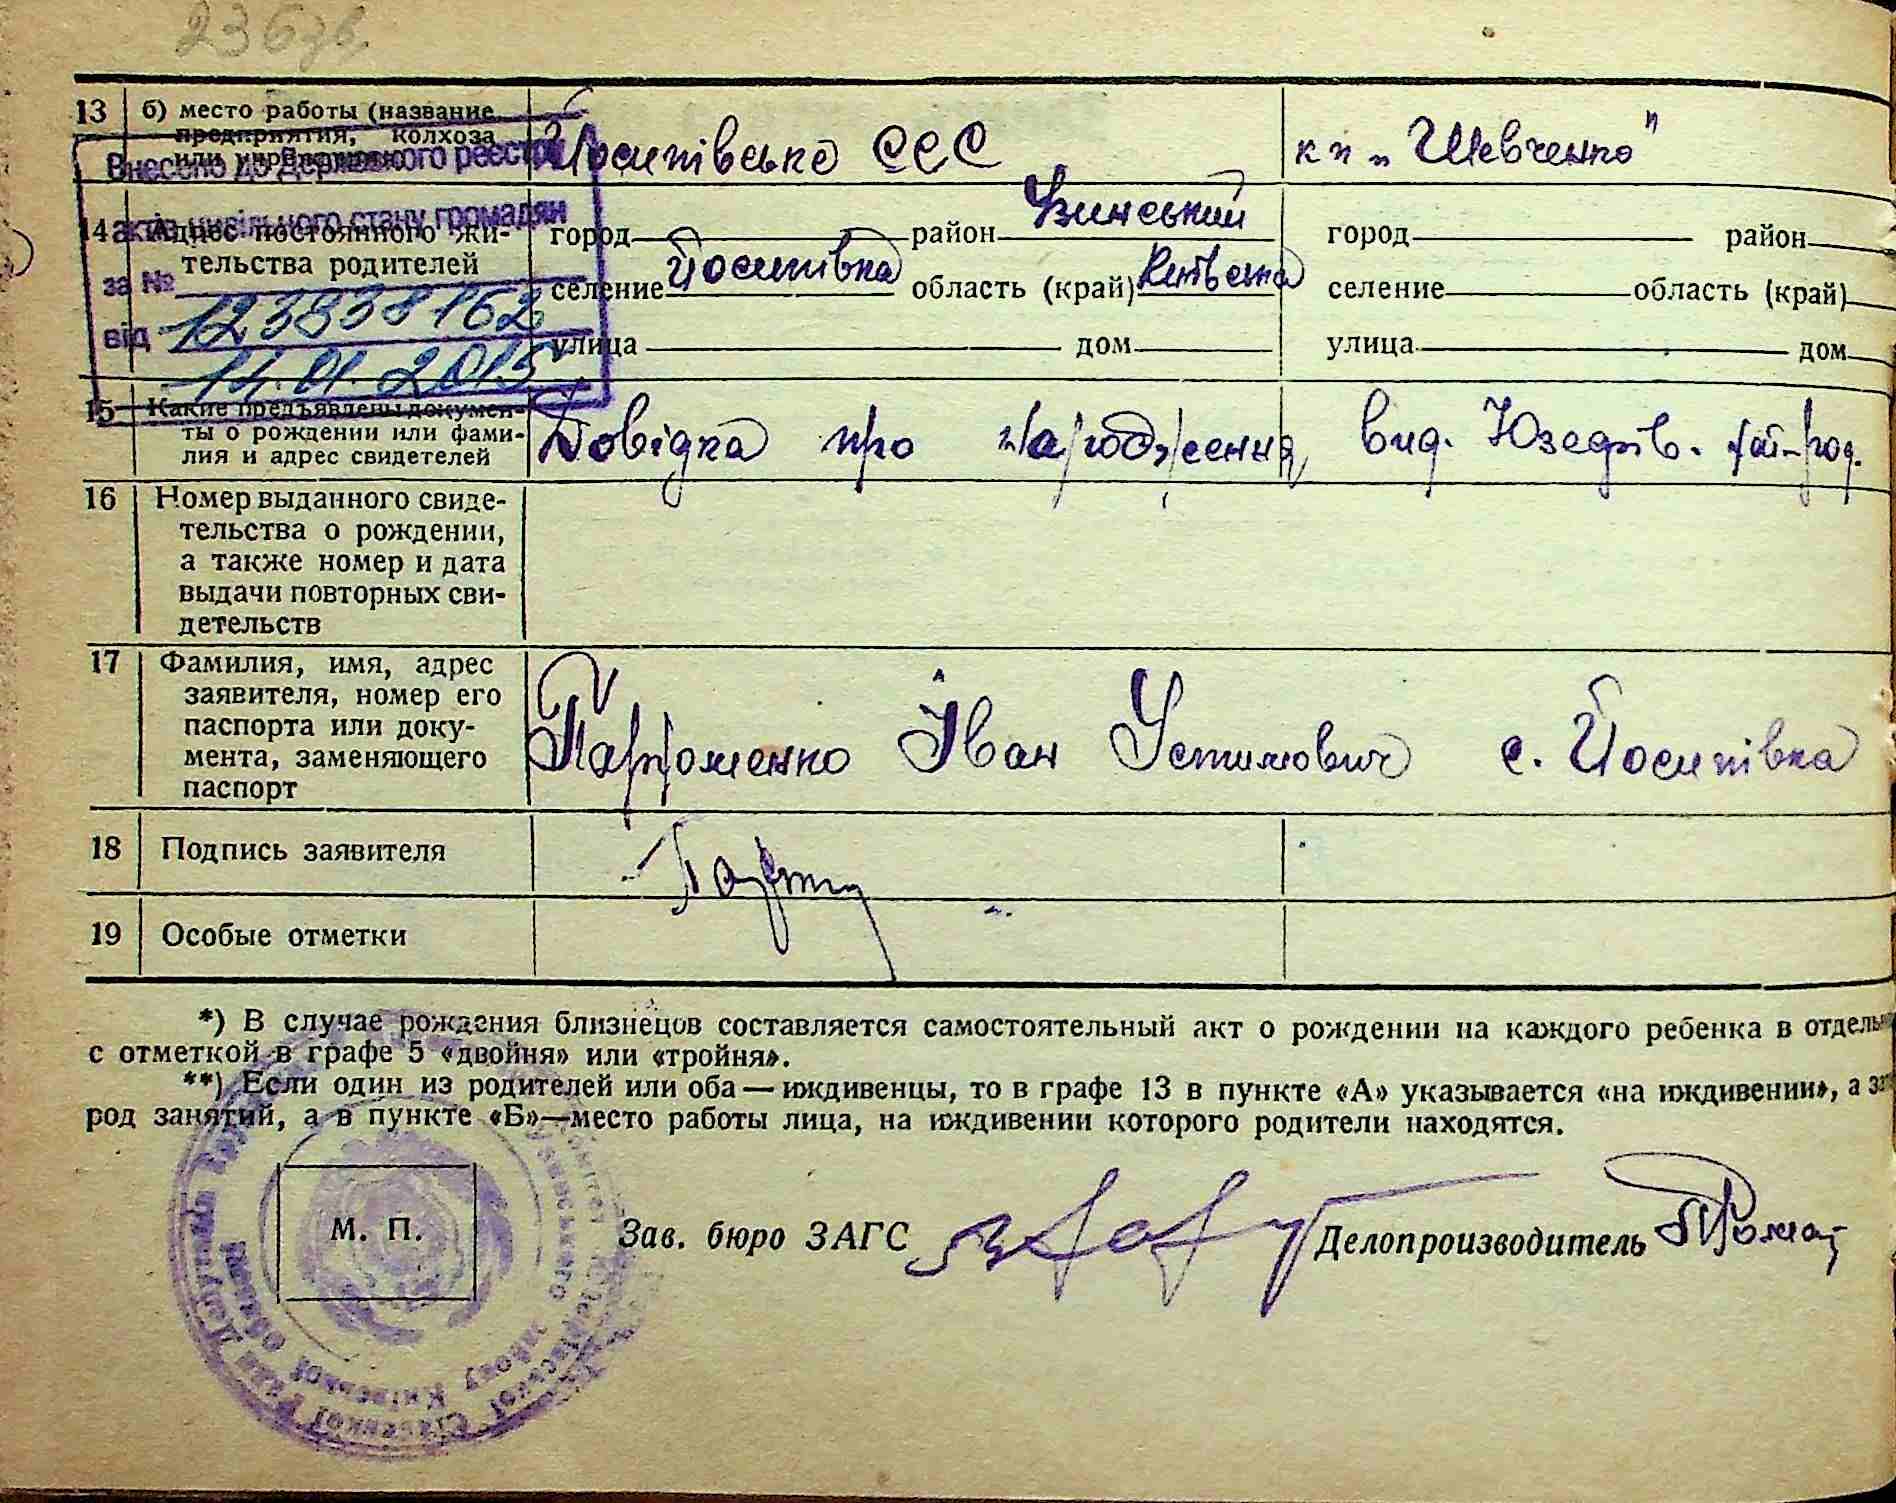 236зв.
13 б) место работы (название
предприятия, колхоза
или учреждения)
Йосипівське ССС
кп „Шевченко"
Внесено до Державного реєстру
актів цивільного стану громадян
за № 123838162
від 14.01.2015
14 Адрес постоянного жи-
тельства родителей
город район Узинський
селение Йосипівка область (край) Київська
улица дом
город район
селение область (край)
улица дом
15 Какие предъявлены докумен-
ты о рождении или фами-
лия и адрес свидетелей
Довідка про народження, вид. Юзефів.
16 Номер выданного свиде-
тельства о рождении,
а также номер и дата
выдачи повторных сви-
детельств
17 Фамилия, имя, адрес
заявителя, номер его
паспорта или доку-
мента, заменяющего
паспорт
Пархоменко Іван Устимович с. Йосипівка
18 Подпись заявителя
19 Особые отметки
*) В случае рождения близнецов составляется самостоятельный акт о рождении на каждого ребенка в отдель
с отметкой в графе 5 «двойня» или «тройня».
**) Если один из родителей или оба — иждивенцы, то в графе 13 в пункте «А» указывается «на иждивении», а
род занятий, а в пункте «Б»—место работы лица, на иждивении которого родители находятся.
М. П.
Зав. бюро ЗАГС
Делопроизводитель